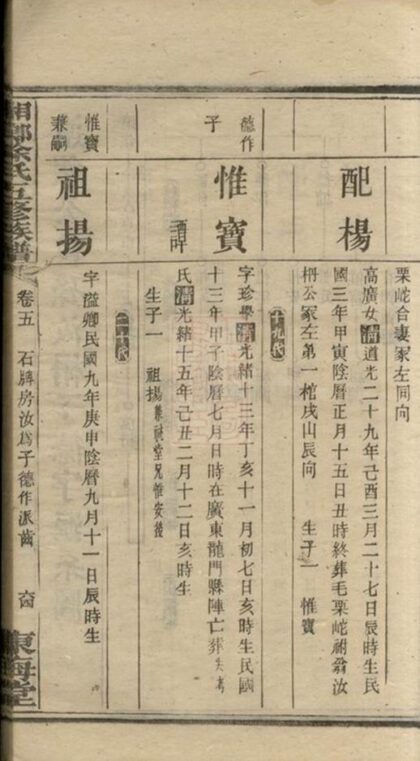 栗岮台妻冢左同向
配楊
高廣女清道光二十九年己酉三月二十七日辰時生民
國三年甲寅陰曆正月十五日丑時終葬毛栗岮祔翁汝
枬公冢左第一棺戌山辰向 生子一 惟寶
十九代
德作
子
惟寶
字珍學清光緒十三年丁亥十一月初七日亥時生民國
十三年甲子陰曆七月日時在廣東龍門縣陣亡葬失考
氏清光緒十五年己丑二月十二日亥時生
生子一 祖揚兼祧堂兄惟安後
二十代
惟寶
兼嗣
祖揚
字溢卿民國九年庚申陰曆九月十一日辰時生
湘鄉余氏五修族譜
卷五 石牌房汝為子德作派齒
東海堂